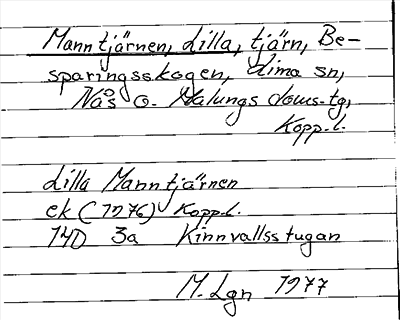 Manntjärnen, Lilla, tjärn, Be-
sparingsskogen, Lima sn,
Nås o. Malungs doms.tg,
Kopp.l.
Lilla Manntjärnen
ek (1976) Kopp.l.
14D 3a Kinnvallsstugan
M. Lgn 1977